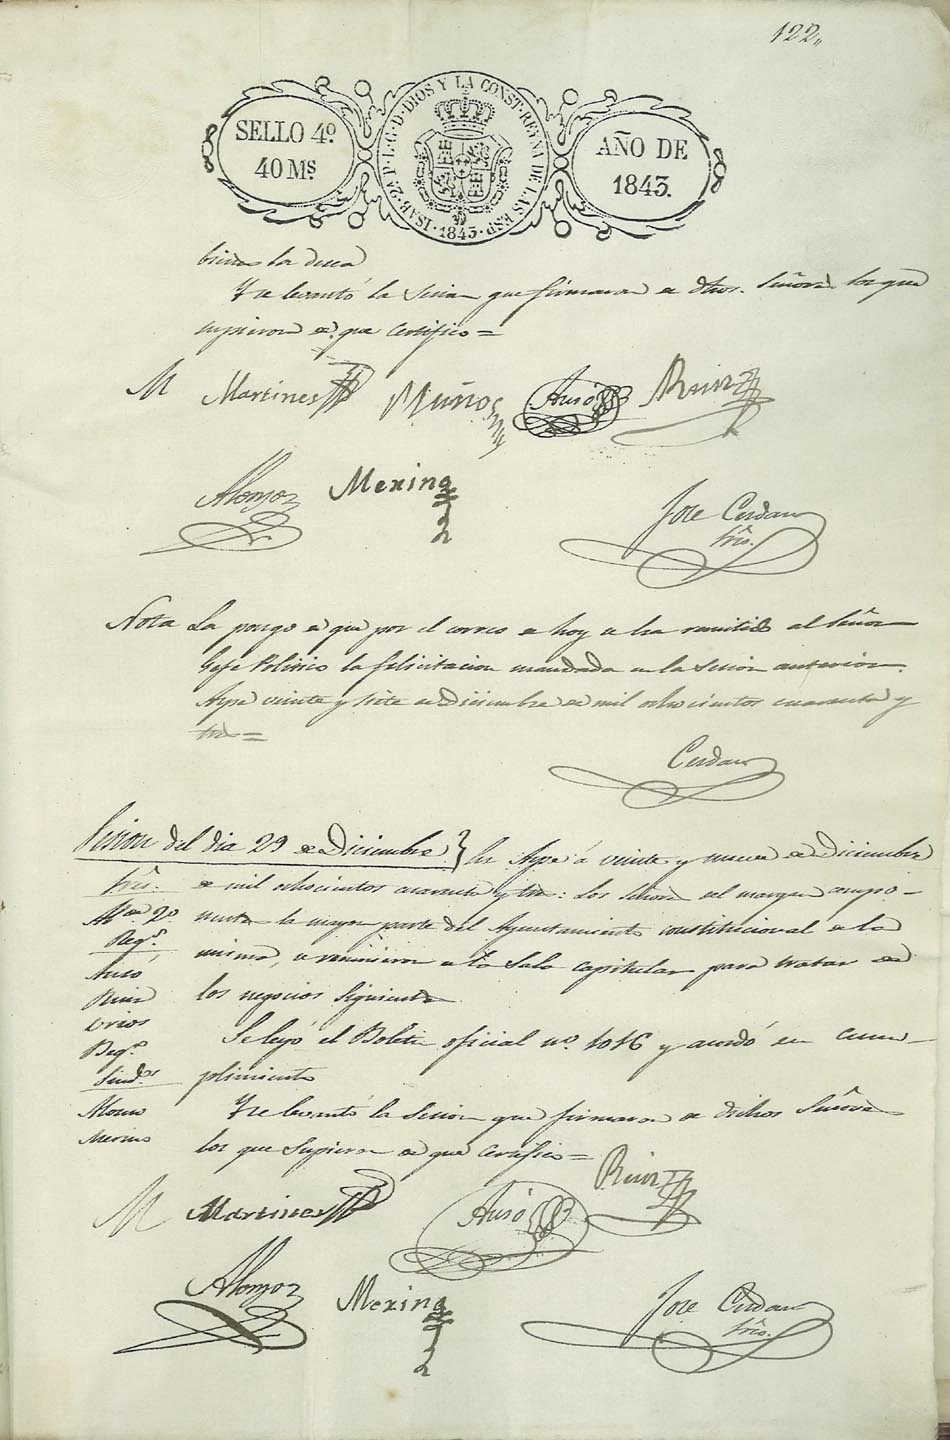 122
SELLO 4º
40 Mˢ
ISAB. 2ª P. L. G. D. DIOS Y LA CONST. REYNA DE LAS ESP.
1843
AÑO DE
1843.
bienes la
Y se levantó la Sesion que firmaron de dhos. Señores los que
supieron de que Certifico =
M Martines Muños Ausó Ruiz
Alonzo Merino
Jose Cerdan
srio.
Nota La pongo de que por el correo de hoy se ha remitido al Señor
Gefe Politico la felicitacion mandada en la Sesion anterior.
Aspe veinte y siete de Diciembre de mil ochocientos cuarenta y
tres =
Cerdan
Sesion del dia 29 de Diciembre } En Aspe á veinte y nueve de Diciembre
Sres.
de mil ochocientos cuarenta y tres: Los Señores del margen compo-
Al.e 2º
nentes la mayor parte del Ayuntamiento constitucional de la
Reg.s
misma, se reunieron en la Sala capitular para tratar de
Ausó
Ruiz
los negocios siguientes
Se leyó el Boletin oficial nº. 1016 y acordó su cum-
Reg.s
Sind.s
plimiento
Alonso
Y se levantó la Sesion que firmaron de dichos Señores
Merino
los que Supieron de que Certifico =
M Martines Ausó Ruiz
Alonzo Merino
Jose Cerdan
srio.